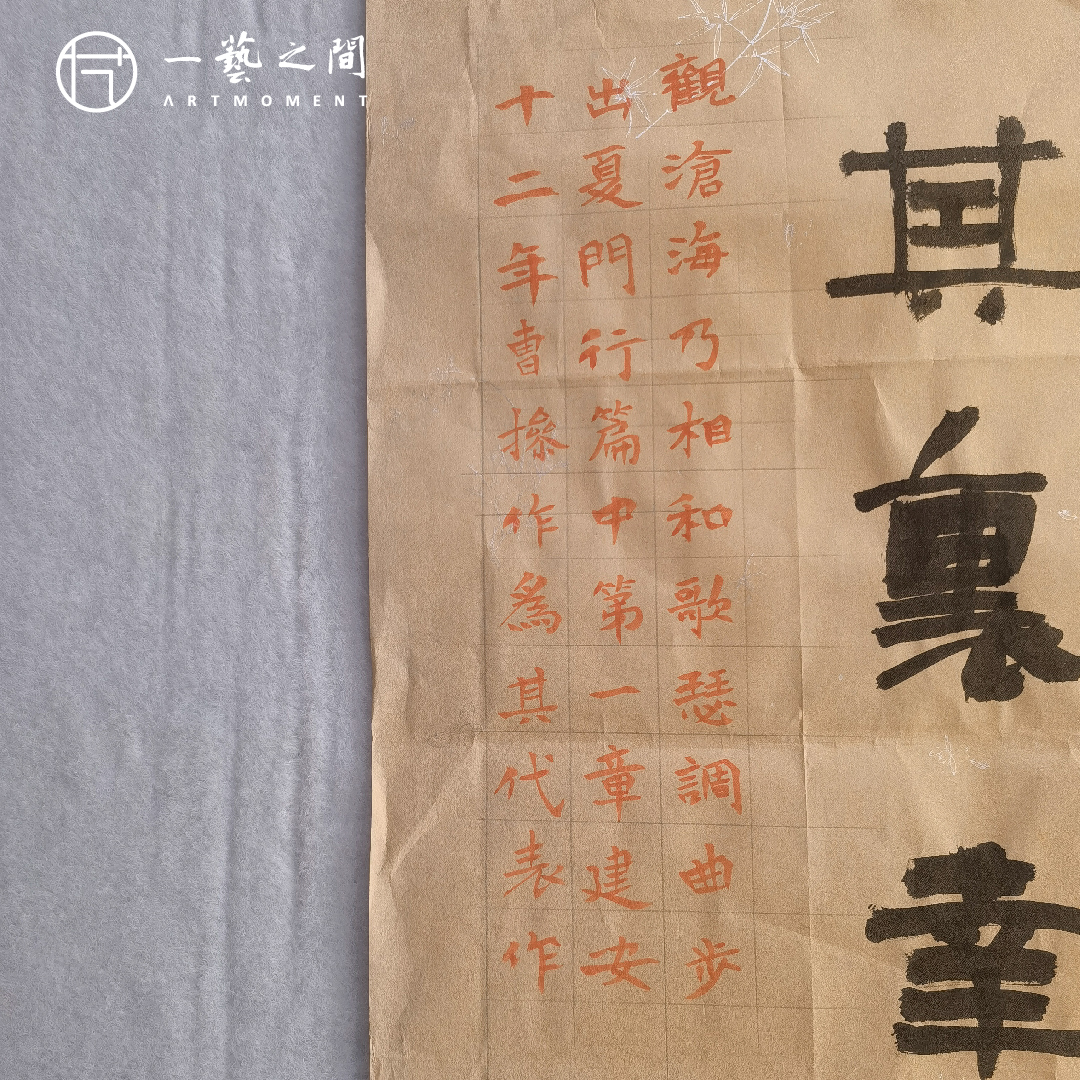 一藝之間
ARTMOMENT
其裏幸
觀滄海乃相和歌瑟調曲步
出夏門行篇中第一章建安
十二年曹操作爲其代表作